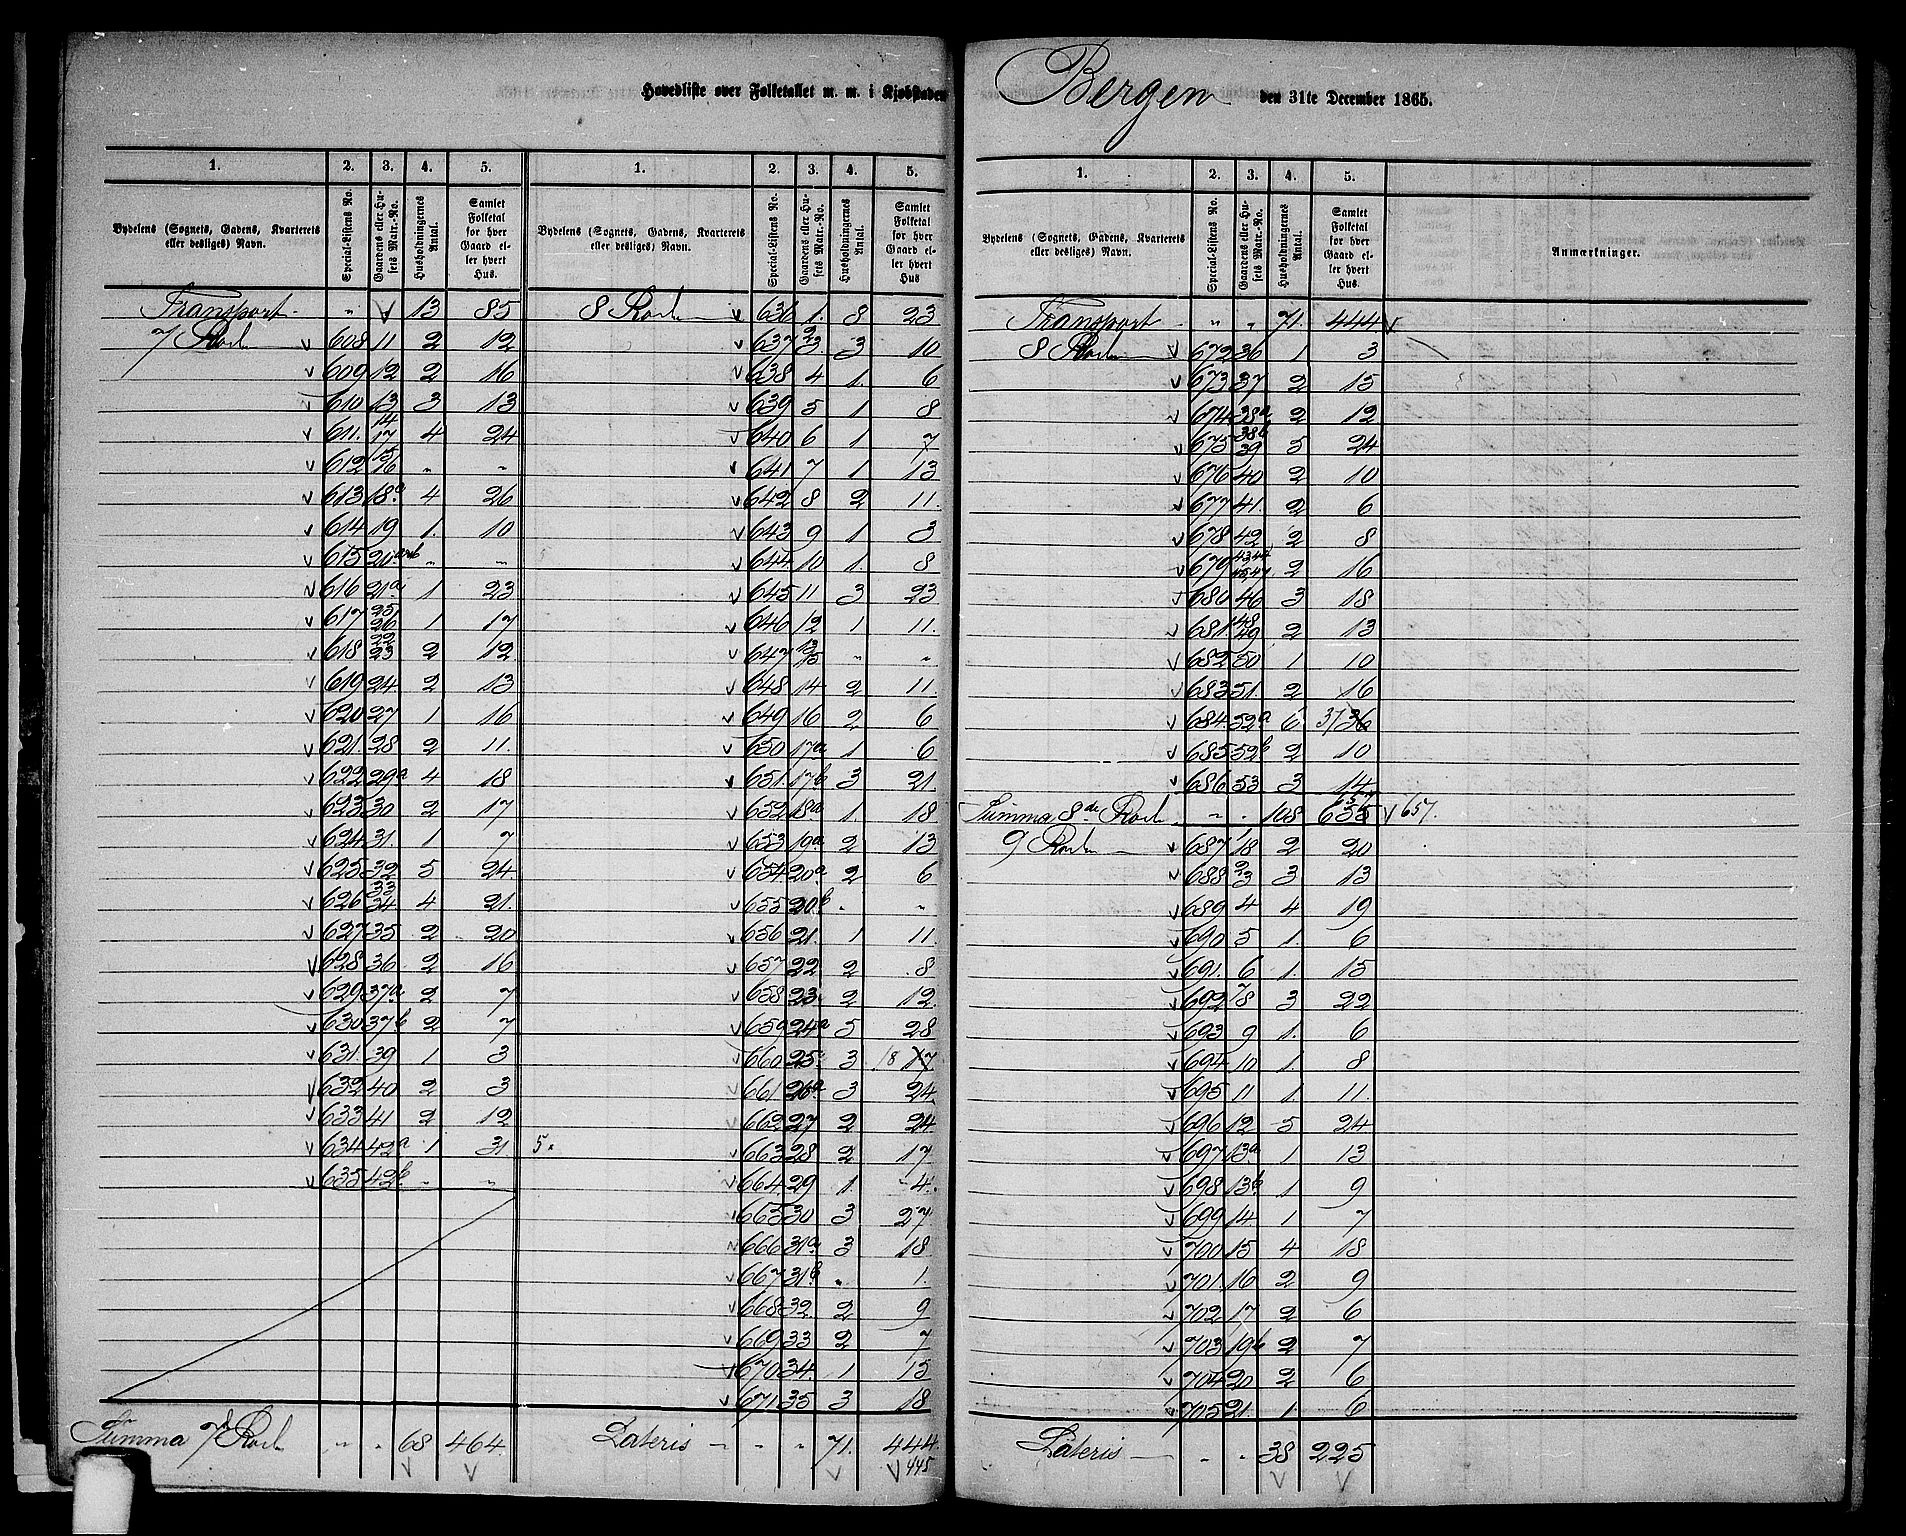 Hovedliste over Folketallet m. m. i Kjøbstaden Bergen den 31te December 1865.
1. 2. 3. 4. 5. 1. 2. 3. 4. 5.
Bydelens (Sognets, Gadens, Kvarterets eller desliges) Navn. Special-Listens No. Gaardens eller Husets Matr.-No. Husholdningernes Antal. Samlet Folketal for hver Gaard eller hvert Hus.
Transport " 13 85
7 Rode 608 11 2 12
609 12 2 16
610 13 3 13
611. 14 17 4 24
612 15 16 " "
613 18a 4 26
614 19 1. 10
615 20 a&b " "
616 21a 1 23
617 25 26 1 17
618 22 23 2 12
619 24 2 13
620 27 1 16
621. 28 2 11.
622 29a 4 18
623 30 2 17
624 31. 1 7
625 32 5 24.
626 33 34 4 21.
627 35 2 20
628 36 2 16
629 37a 2 7
630 37b 2 7
631. 39 1 3
632 40 2 3
633 41 2 12
634 42a 1 31 5.
635 42b " "
Summa 7d Rode " " 68 464.
Bydelens (Sognets, Gadens, Kvarterets eller desliges) Navn. Special-Listens No. Gaardens eller Husets Matr.-No. Husholdningernes Antal. Samlet Folketal for hver Gaard eller hvert Hus
8 Rode 636 1. 8 23
637 2 3. 3 10
638 4 1. 6
639 5 1 8
640 6 1 7
641 7 1 13
642 8 2 11.
643 9 1 3
644 10 1. 8
645 11 3 23
646 12 1 11.
647 13 15 " "
648 14 2 11.
649 16 2 6
650 17a 1 6
651. 17b 3 21.
652 18a 1. 18
653 19a 2 13
654 20a 2 6
655 20b " "
656 21. 1 11.
657 22 2 8
658 23 2 12.
659 24a 5 28
660 25 3 18 17
661 26a 3 24.
662 27 2 24.
663 28 2 17
664. 29 1. 4.
665 30 3 27
666 31a 3 18
667 31b " 1.
668 32 2 9
669 33 2 7
670 34. 1 15
671. 35 3 18
Lateris " " " 71. 444.
445
1. 2. 3. 4. 5.
Bydelens (Sognets, Gadens, Kvarterets eller desliges) Navn. Special-Listens No. Gaardens eller Husets Matr.-No. Husholdningernes Antal. Samlet Folketal for hver Gaard eller hvert Hus. Anmærkninger.
Transport " " 71. 444.
8 Rode 672 36 1 3
673 37 2 15
674 38a 2 12
675 38b 39 5 24
676 40 2 10
677 41. 2 6
678 42 2 8
679 43 44 45, 47 2 16
680 46 3 18
681. 48 49 2 13
682 50 1 10
683 51 2 16
684. 52a 6 37 36
685 52b 2 10
686 53 3 14
Summa 8de Rode " " 108 655 657 657.
9 Rode 687 1 18 2 20
688 2 3 3 13
689 4 4 19
690 5 1. 6
691. 6 1. 15
692 7 8 3 22
693 9 1. 6
694 10 1. 8
695 11 1. 11.
696 12 5 24
697 13a 1 13
698 13b 1 9
699 14 1 7
700 15 4 18
701. 16 2 9
702 17 2 6
703 19b 2 7
704 20 2 6
705 21. 1 6
Lateris " " 38 225